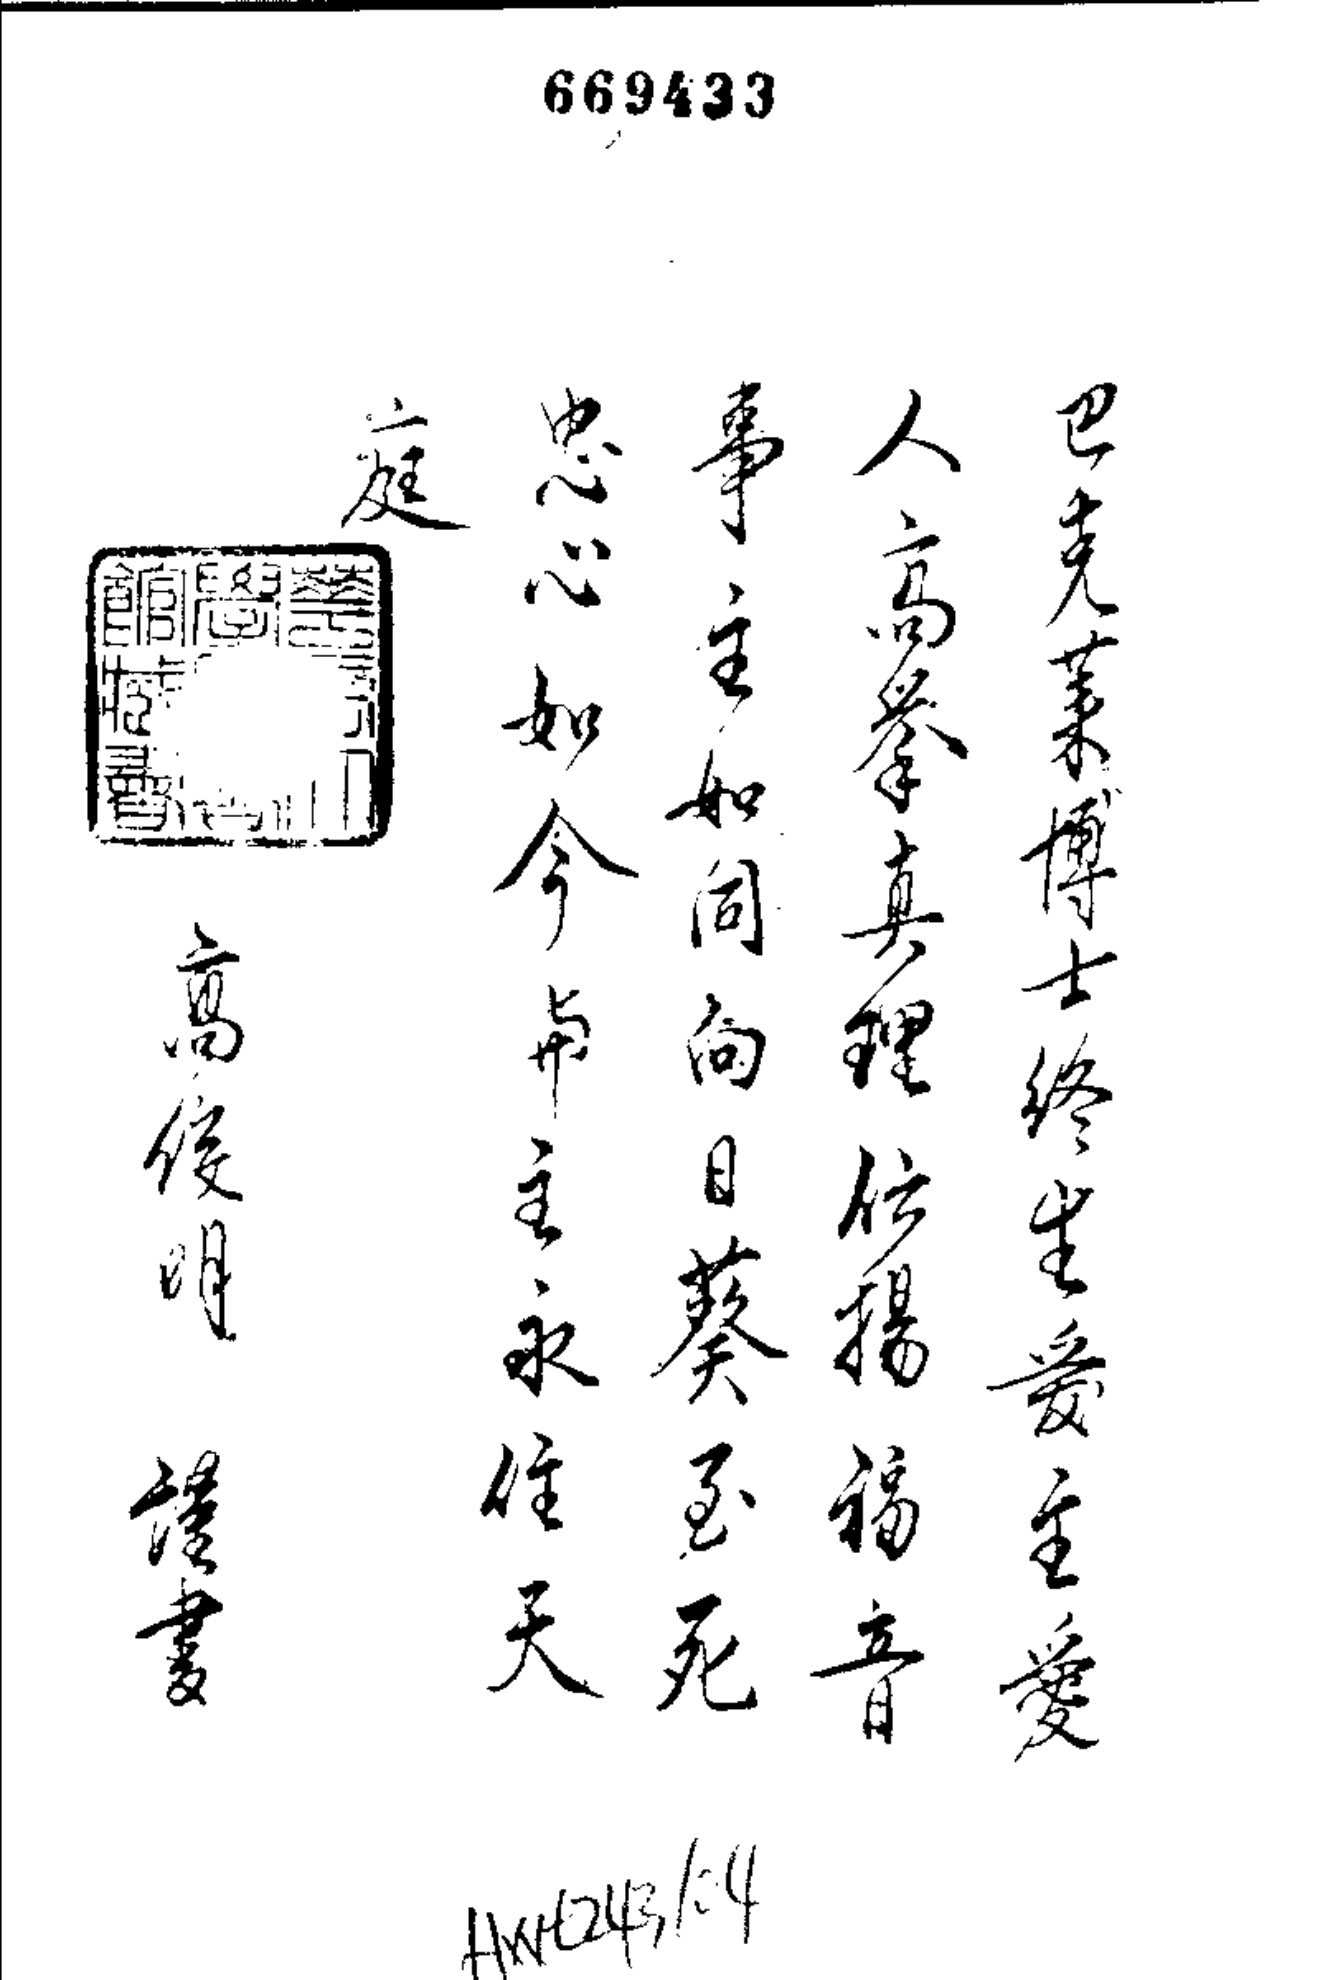 669433
巴克萊博士終生愛主愛
人高舉真理傳揚福音
事主如同向日葵至死
忠心心如今與主永住天
庭
高俊明 謹書